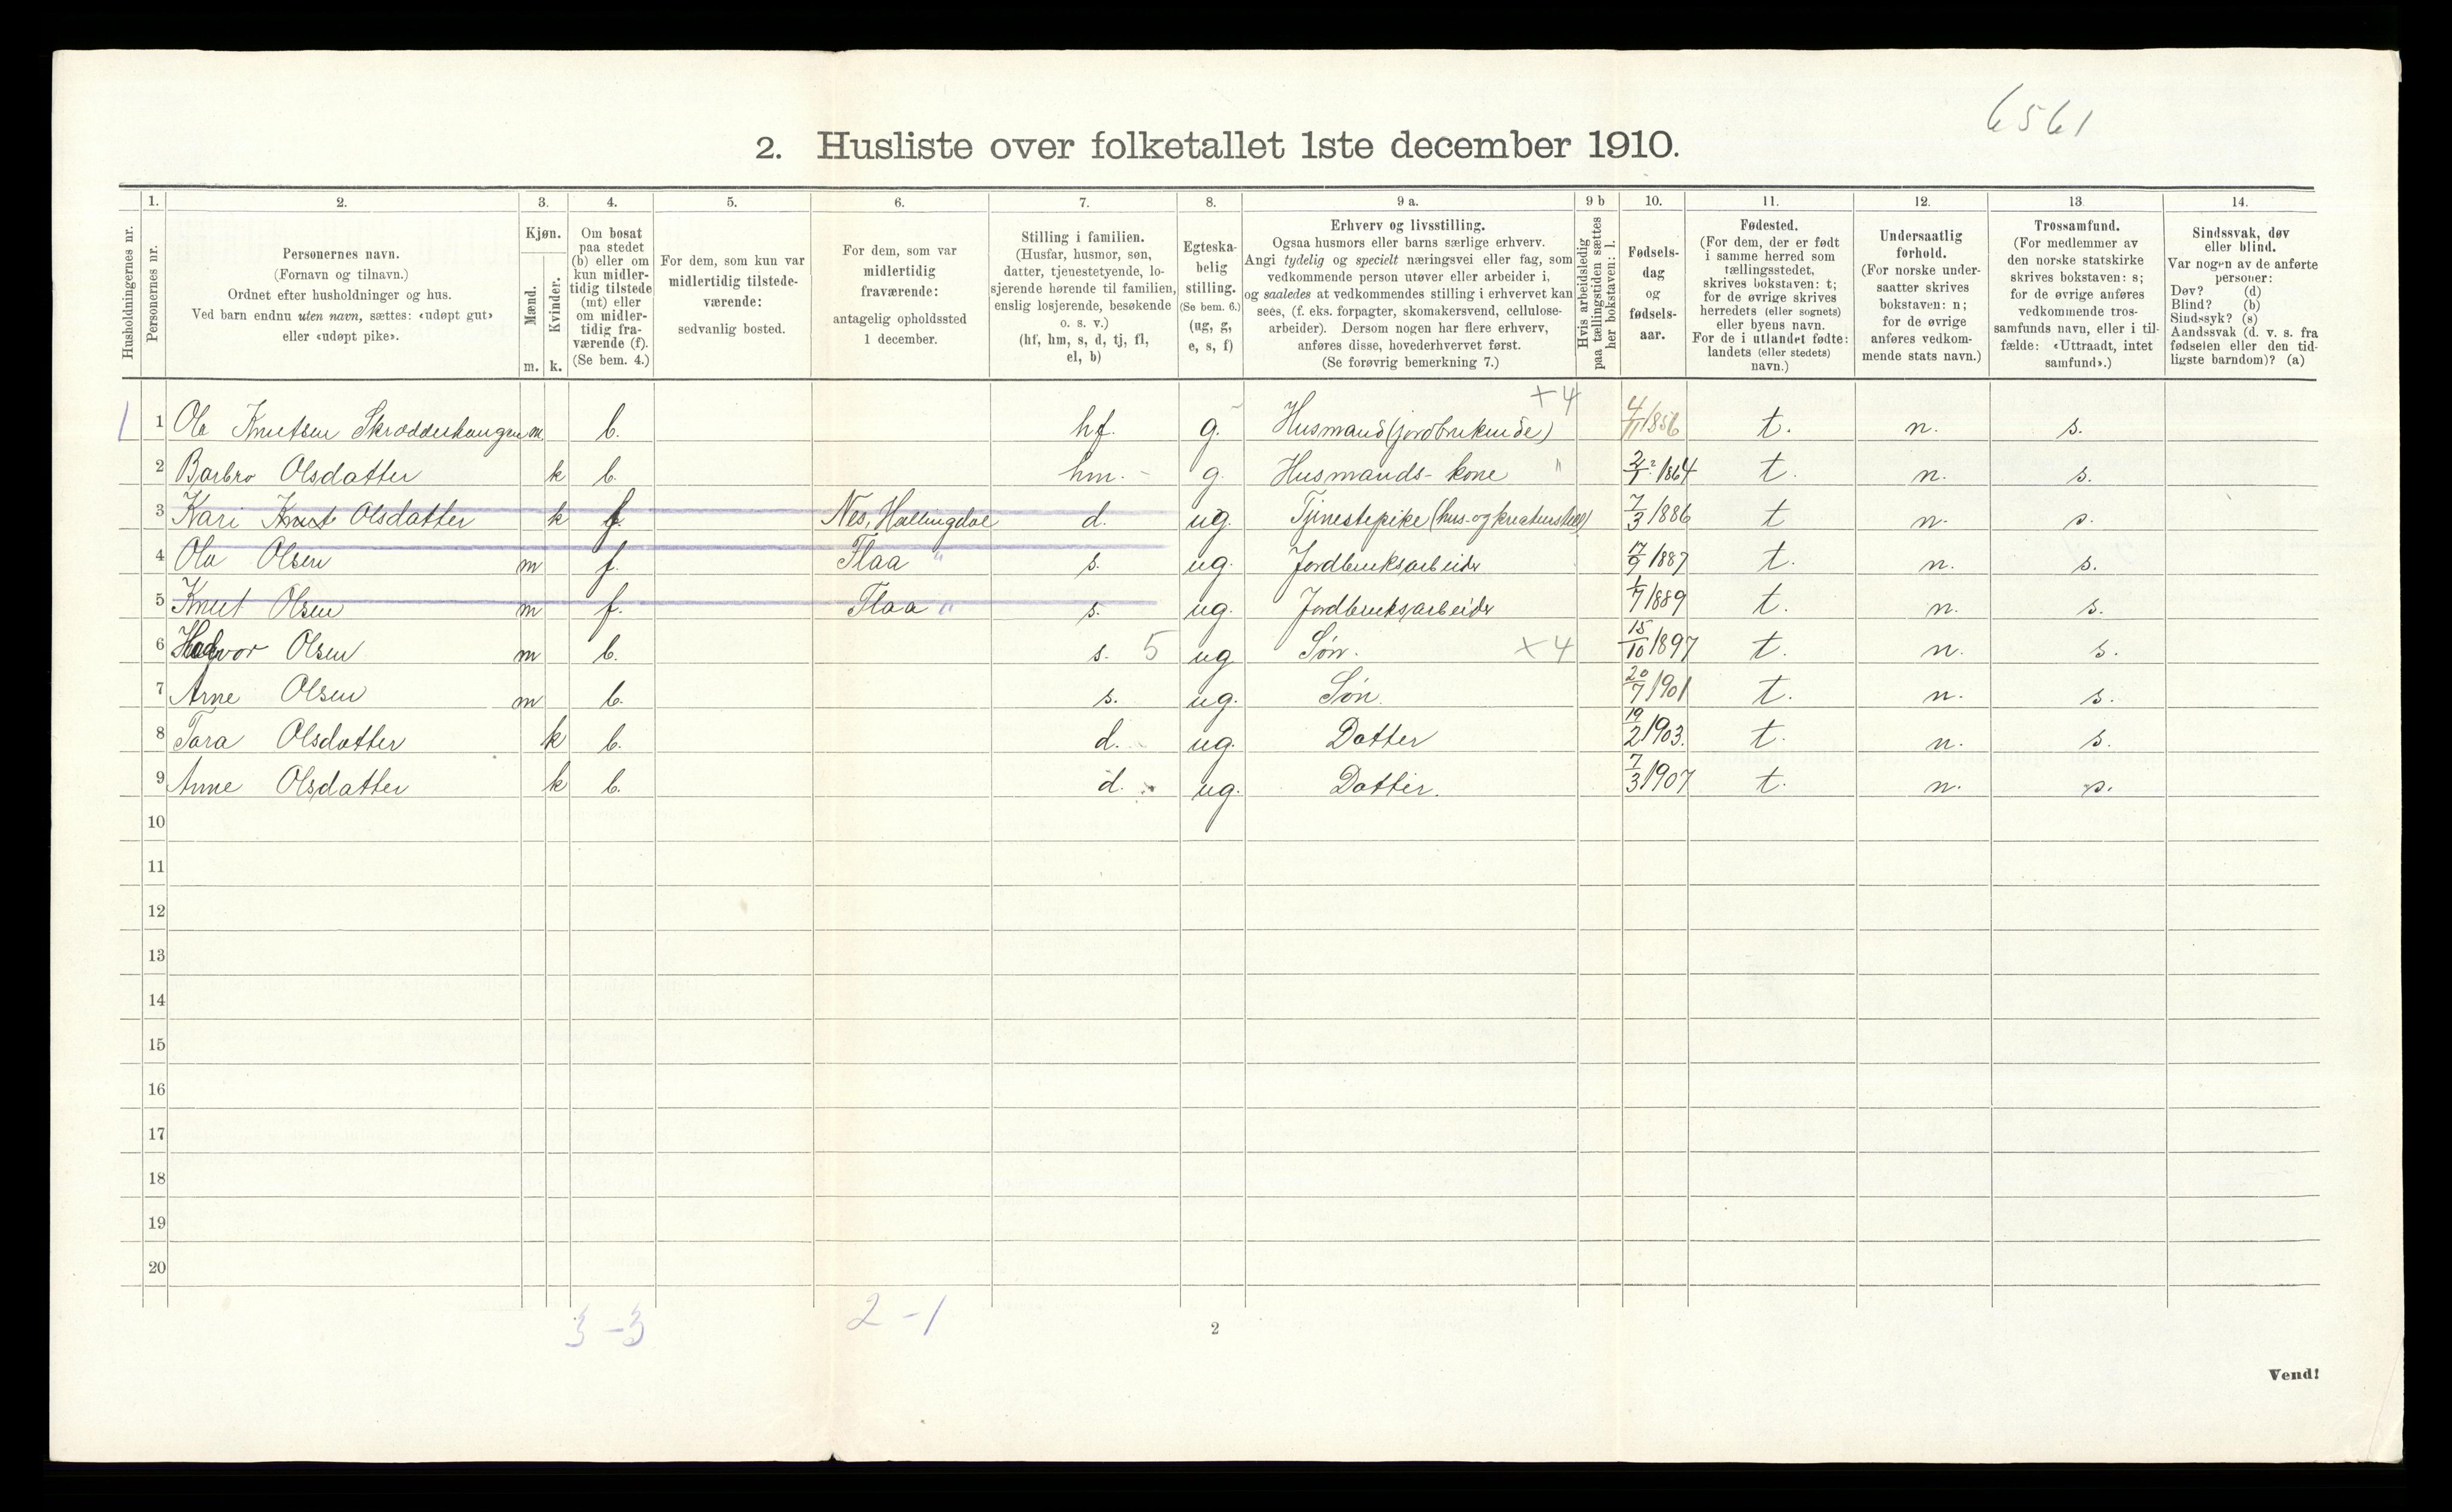 6561
2. Husliste over folketallet 1ste december 1910.
Husholdningernes nr.
1.
Personernes nr.
2.
Personernes navn.
(Fornavn og tilnavn.)
Ordnet efter husholdninger og hus.
Ved barn endnu uten navn, sættes: «udøpt gut»
eller «udøpt pike».
3.
Kjøn.
Mænd.
Kvinder.
m. k.
4.
Om bosat
paa stedet
(b) eller om
kun midler-
tidig tilstede
(mt) eller
om midler-
tidig fra-
værende (f).
(Se bem. 4.)
5.
For dem, som kun var
midlertidig tilstede-
værende:
sedvanlig bosted.
6.
For dem, som var
midlertidig
fraværende:
antagelig opholdssted
1 december.
7.
Stilling i familien.
(Husfar, husmor, søn,
datter, tjenestetyende, lo-
sjerende hørende til familien,
enslig losjerende, besøkende
o. s. v.)
(hf, hm, s, d, tj, fl,
el, b)
8.
Egteska-
belig
stilling.
(Se bem. 6.)
(ug, g,
e, s, f)
9 a.
Erhverv og livsstilling.
Ogsaa husmors eller barns særlige erhverv.
Angi tydelig og specielt næringsvei eller fag, som
vedkommende person utøver eller arbeider i,
og saaledes at vedkommendes stilling i erhvervet kan
sees, (f. eks. forpagter, skomakersvend, cellulose-
arbeider). Dersom nogen har flere erhverv,
anføres disse, hovederhvervet først.
(Se forøvrig bemerkning 7.)
9 b
Hvis arbeidsledig
paa tællingstiden sættes
her bokstaven: l.
10.
Fødsels-
dag
og
fødsels-
aar.
11.
Fødested.
(For dem, der er født
i samme herred som
tællingsstedet,
skrives bokstaven: t;
for de øvrige skrives
herredets (eller sognets)
eller byens navn.
For de i utlandet fødte:
landets (eller stedets)
navn.)
12.
Undersaatlig
forhold.
(For norske under-
saatter skrives
bokstaven: n;
for de øvrige
anføres vedkom-
mende stats navn.)
13
Trossamfund.
(For medlemmer av
den norske statskirke
skrives bokstaven: s;
for de øvrige anføres
vedkommende tros-
samfunds navn, eller i til-
fælde: «Uttraadt, intet
samfund».)
14.
Sindssvak, døv
eller blind.
Var nogen av de anførte
personer:
Døv? (d)
Blind? (b)
Sindssyk? (s)
Aandssvak (d. v. s. fra
fødselen eller den tid-
ligste barndom)? (a)
+4
1 1 Ole Knutsen Skrædderhaugen m b. hf. g. Husmand (jordbrukende) 4/11 1856 t. n. s.
2 Barbro Olsdatter k b. hm. - g. Husmands-kone " 1864 t. n. s.
3 Kari Knut Olsdatter k f Nes, Hallingdal d. ug. Tjenestepike (hus- og kreaturstell) 7/3 1886 t n. s.
4 Ola Olsen m f. Flaa " s. ug. Jordbruksarbeider 17/9 1887 t. n. s.
5 Knut Olsen m f. Flaa " s. ug. Jordbruksarbeider 1/7 1889 t. n. s.
6 Halvor Olsen m b. s. 5 ug Søn. +4 15/10 1897 t. n. s.
7 Arne Olsen m b. s. ug. Søn. 20/7 1901 t. n. s.
8 Tora Olsdatter k b. d. ug. Datter 19/2 1903. t. n. s.
9 Anne Olsdatter k b. d. ug. Datter. 7/3 1907 t. n. s.
10
11
12
13
14
15
16
17
18
19
20
3-3 2-1
2
Vend!